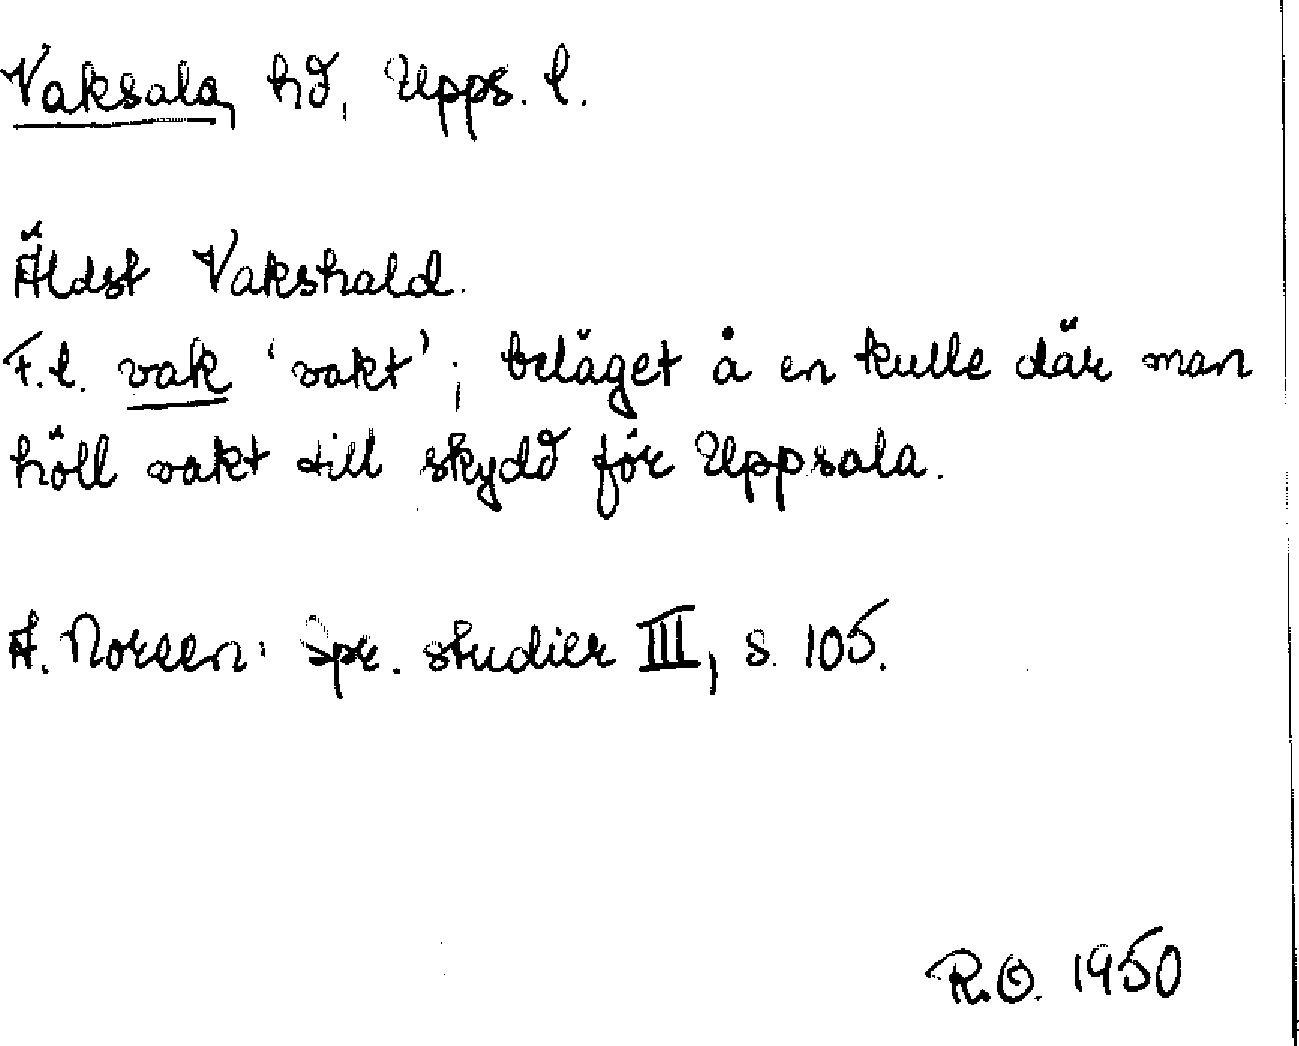 Vaksala, hd, Upps. l.
Äldst Vakshald.
F.l. vak 'vakt'; beläget å en kulle där man
höll vakt till skydd för Uppsala.
A. Noreen: Spr. studier III, s. 105.
R.O. 1950